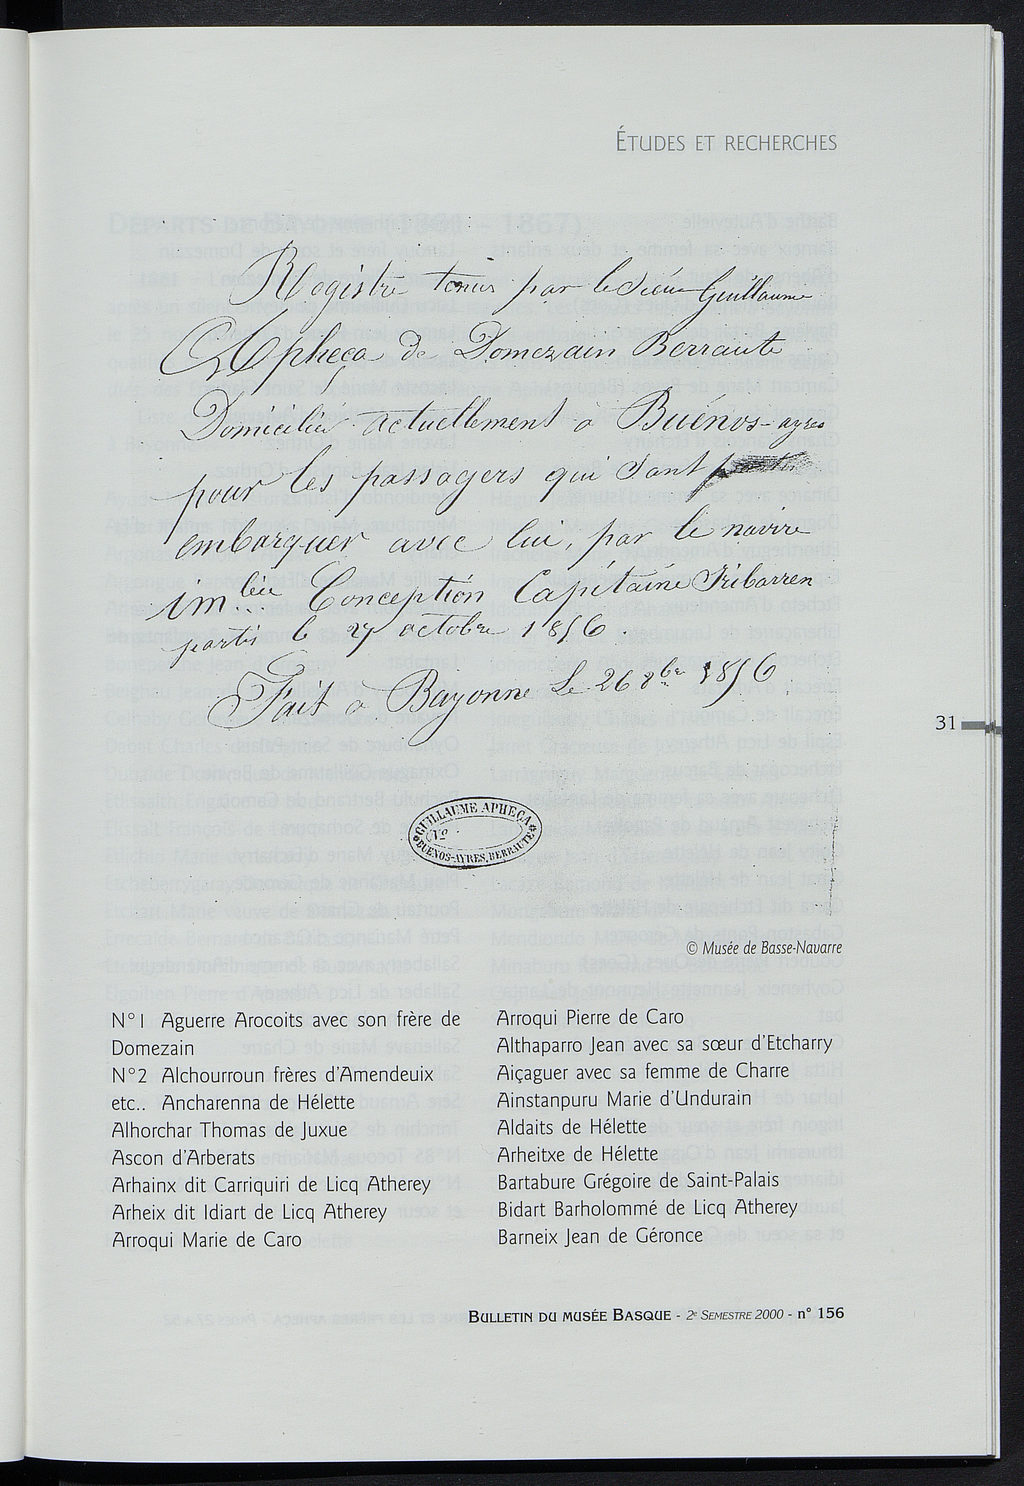 ÉTUDES ET RECHERCHES
Registre tenus par le Sieur Guillaume
Apheça de Domezain Berraute
Domicilié actuellement à Buénos-ayres
pour les passagers qui sont
embarquer avec lui, par le navire
im.lée Conception Capitaine Iribarren
partis le 27 octobre 1856.
Fait à Bayonne Le 26 8bre 1856
GUILLAUME APHEÇA
No.
BUENOS-AYRES, BERRAUTE
31
© Musée de Basse-Navarre
N°1 Aguerre Arocoits avec son frère de
Domezain
N°2 Alchourroun frères d'Amendeuix
etc.. Ancharenna de Hélette
Alhorchar Thomas de Juxue
Ascon d'Arberats
Arhainx dit Carriquiri de Licq Atherey
Arheix dit Idiart de Licq Atherey
Arroqui Marie de Caro
Arroqui Pierre de Caro
Althaparro Jean avec sa sœur d'Etcharry
Aiçaguer avec sa femme de Charre
Ainstanpuru Marie d'Undurain
Aldaits de Hélette
Arheitxe de Hélette
Bartabure Grégoire de Saint-Palais
Bidart Barholommé de Licq Atherey
Barneix Jean de Géronce
BULLETIN DU MUSÉE BASQUE - 2e SEMESTRE 2000 - n° 156